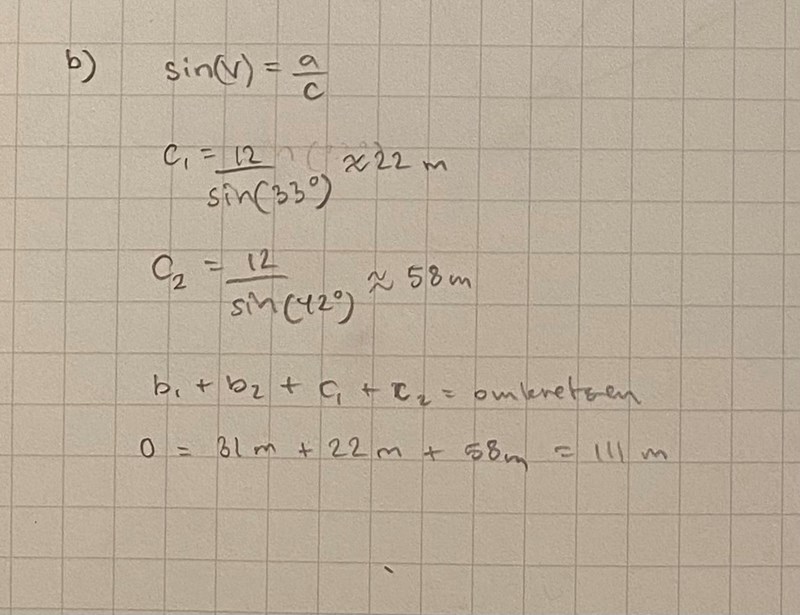 b) sin(v) = a/c
C₁ = 12/sin(33°) ≈ 22 m
C₂ = 12/sin(42°) ≈ 58 m
b₁ + b₂ + C₁ + C₂ = omkretsen
O = 31 m + 22 m + 58 m = 111 m